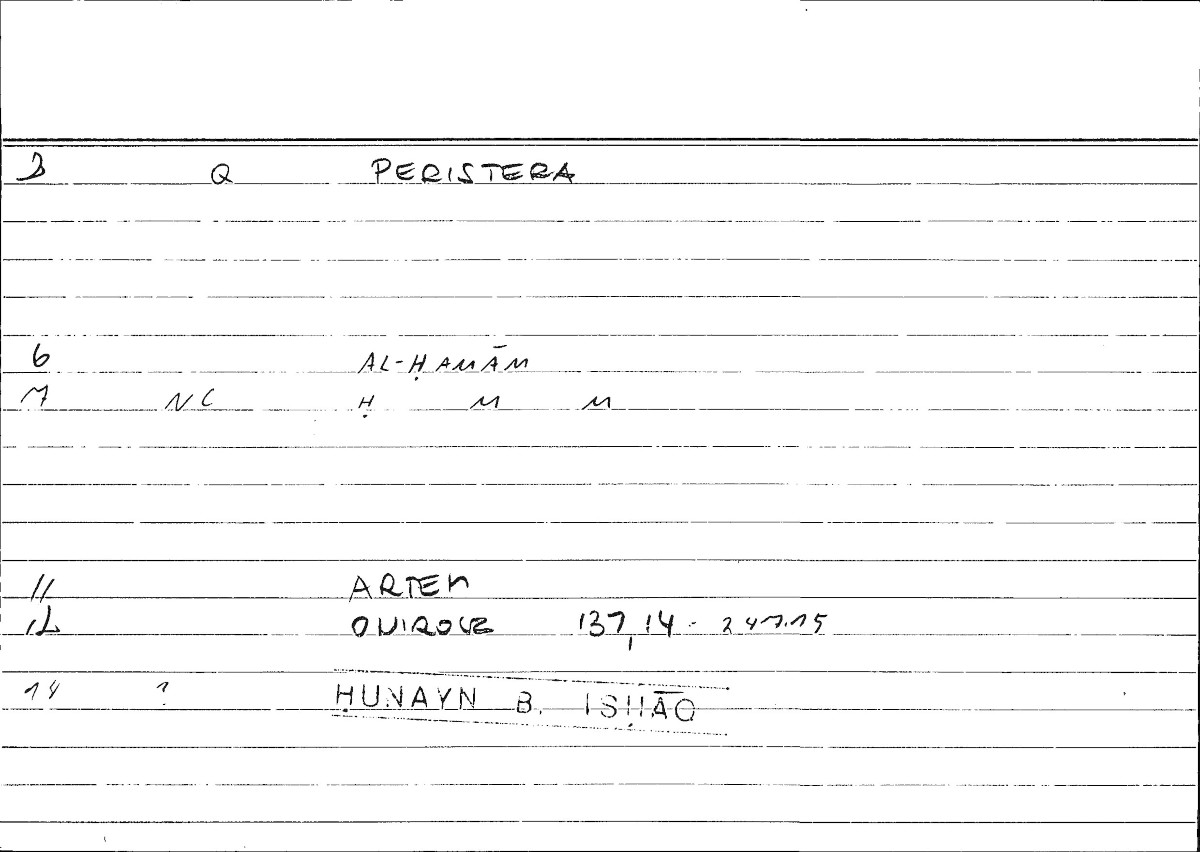 3 Q PERISTERA
6 AL-ḤAMĀM
7 NC Ḥ M M
11 ARTEM
12 ONIROCR 137,14 - 247.15
14 ? ḤUNAYN B. ISḤĀQ